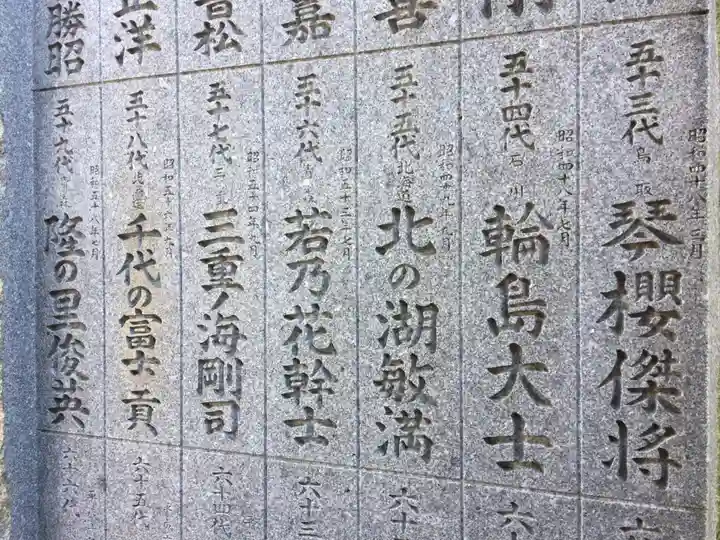 剛
善
嘉
音松
正洋
勝昭
五十三代 鳥取 昭和四十八年三月
琴櫻傑將
五十四代 石川 昭和四十八年七月
輪島大士
五十五代 北海道 昭和四十九年九月
北の湖敏満
五十六代 昭和五十三年七月
若乃花幹士
五十七代 三重 昭和五十四年九月
三重ノ海剛司
五十八代 北海道 昭和五十六年九月
千代の富士貢
五十九代 昭和五十八年七月
隆の里俊英
六十三
六十四代
六十五代
六十六代